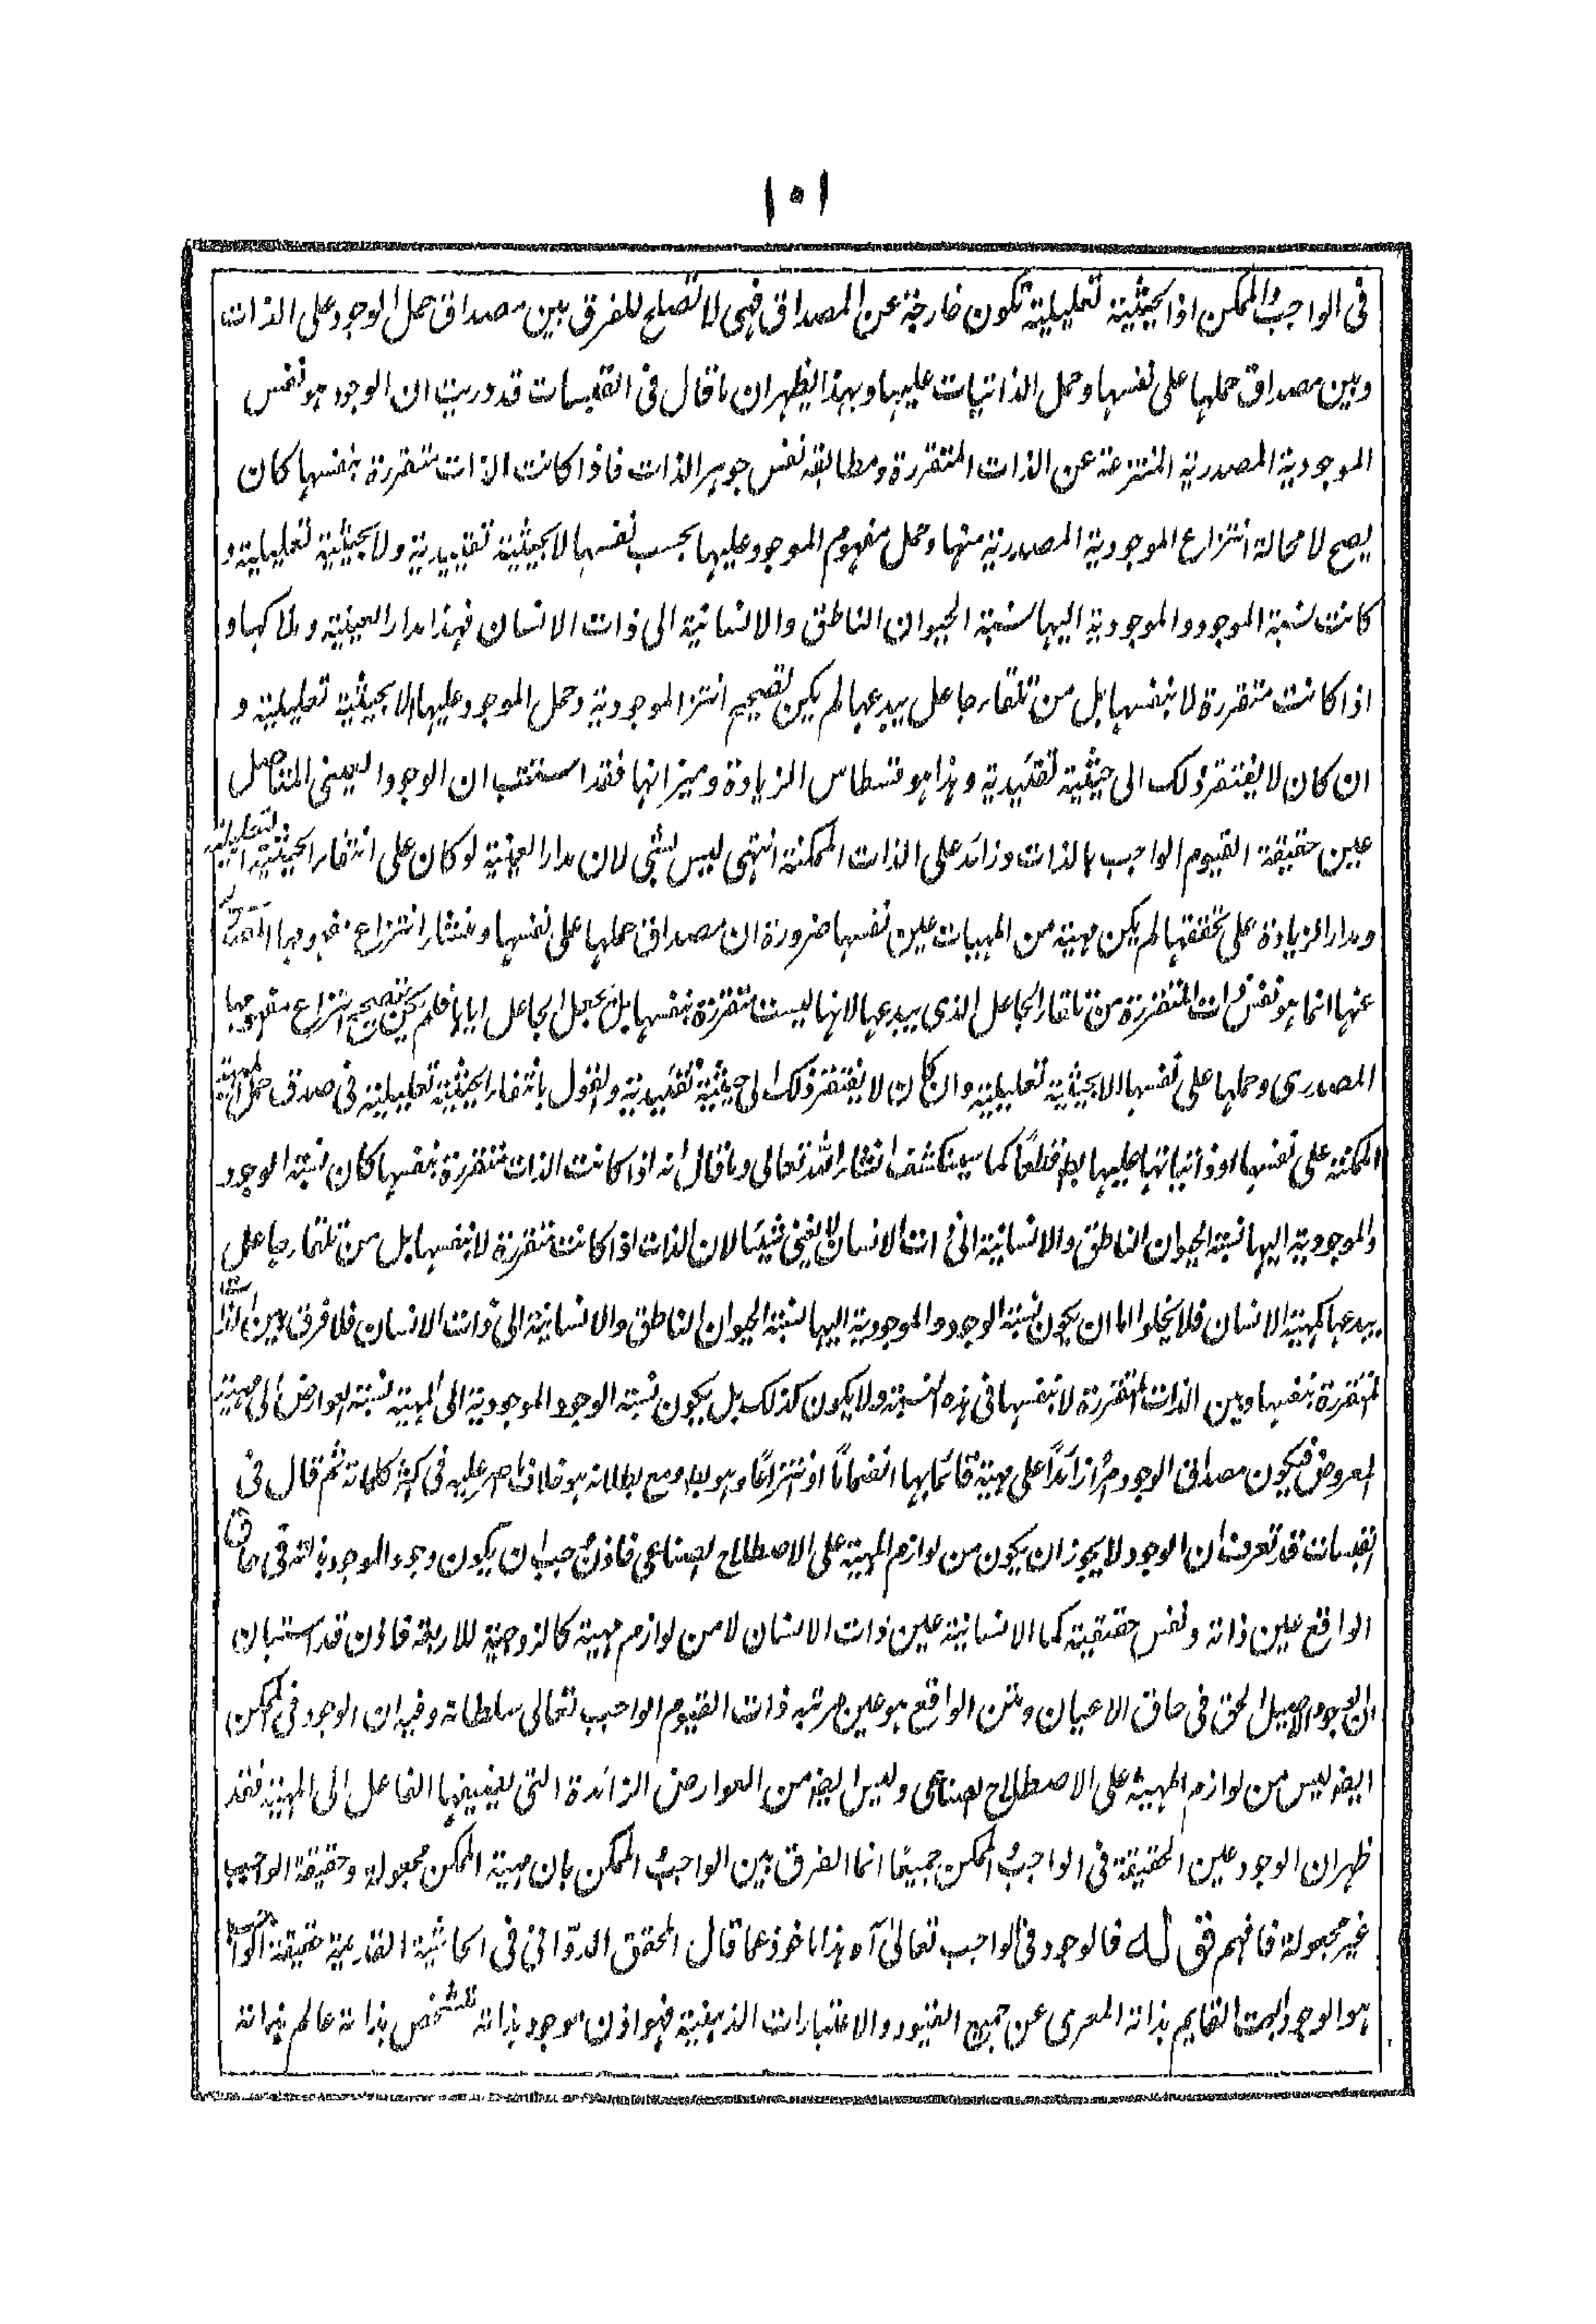 ١٠١
فى الواجب والممكن اذا الحيثية تعليلية تكون خارجة عن المصداق فهى لا تصلح للفرق بين مصداق حمل الوجود على الذات
وبين مصداق حملها على نفسها وحمل الذاتيات عليها وبهذا يظهر ان ما قال فى القبسات قد دريت ان الوجود هو نفس
الموجودية المصدرية المنتزعة عن الذات المتقررة ومطابقه نفس جوهر الذات فاذا كانت الذات متقررة بنفسها كان
يصح لا محالة انتزاع الموجودية المصدرية منها وحمل مفهوم الموجود عليها بحسب نفسها لا بحيثية تقييدية ولا بحيثية تعليلية و
كانت نسبة الموجود والموجودية اليها نسبة الحيوان الناطق والانسانية الى ذات الانسان فهذا مدار العينية وملاكها و
اذا كانت متقررة لا بنفسها بل من تلقاء جاعل يبدعها لم يكن تصحيح انتزا الموجودية وحمل الموجود عليها الا بحيثية تعليلية و
ان كان لا يفتقر ذلك الى حيثية تقييدية وهذا هو قسطاس الزيادة وميزانها فقد استتب ان الوجود العينى المتاصل
عين حقيقة القيوم الواجب بالذات وزائد على الذات الممكنة انتهى ليس بشئ لان مدار العينية لو كان على انتفاء الحيثية التعليلية
ومدار الزيادة على تحققها لم يكن مهية من المهيات عين نفسها ضرورة ان مصداق حملها على نفسها ومنشاء انتزاع مفهومها المصدرى
عنها انما هو نفس ذات المتقررة من تلقاء الجاعل الذى يبدعها لانها ليست متقررة بنفسها بل بجعل الجاعل اياها فلم يكن تصحيح انتزاع مفهومها
المصدرى وحملها على نفسها الا بحيثية تعليلية وان كان لا يفتقر ذلك الى حيثية تقييدية والقول بانتفاء الحيثية تعليلية فى صدق حمل المهية
الممكنة على نفسها او ذاتياتها عليها بط قطعًا كما سينكشف انشاء الله تعالى وما قال انه اذا كانت الذات متقررة بنفسها كان نسبة الوجود
والموجودية اليها نسبة الحيوان الناطق والانسانية الى ذات الانسان لا يغنى شيئا لان الذات اذا كانت متقررة لا بنفسها بل من تلقاء جاعل
يبدعها كمهية الانسان فلا يخلوا اما ان يكون نسبة الوجود والموجودية اليها نسبة الحيوان الناطق والانسانية الى ذات الانسان فلا فرق بين الذات
المتقررة بنفسها وبين الذات المتقررة لا بنفسها فى هذه النسبة ولا يكون كذلك بل يكون نسبة الوجود الموجودية الى المهية نسبة العوارض الى مهية
المعروض فيكون مصداق الوجود امرًا زائدًا على مهية قائما بها انضمامًا او انتزاعًا وهو بط ومع بطلانه هو خلاف ما صر عليه فى كثر كلماته ثم قال فى
القبسات قد تعرفت ان الوجود لا يجوز ان يكون من لوازم المهية على الاصطلاح الصناعى فاذن يجب ان يكون وجود الموجود بذاته فى حاق
الواقع عين ذاته ونفس حقيقية كما الانسانية عين ذات الانسان لا من لوازم مهية كالزوجية للاربعة فاذن قد استبان
ان الوجود الاصيل الحق فى حاق الاعيان ومتن الواقع هو عين مرتبه ذات القيوم الواجب تعالى سلطانه وفيه ان الوجود فى الممكن
ايضا ليس من لوازم المهية على الاصطلاح الصناعى وليس ايضا من العوارض الزائدة التى يفيضها الفاعل الى المهية فقد
ظهر ان الوجود عين الحقيقة فى الواجب والممكن جميعًا انما الفرق بين الواجب والممكن بان مهية الممكن مجعولة وحقيقة الواجب
غير مجعولة فافهم قوله فالوجود فى الواجب تعالى آه هذا ماخوذ عما قال المحقق الدوانى فى الحاشية القديمة حقيقة الواجب
هو الوجود البحت القايم بذاته المعرى عن جميع القيود والاعتبارات الذهنية فهو اذن موجود بذاته متشخص بذاته عالم بذاته